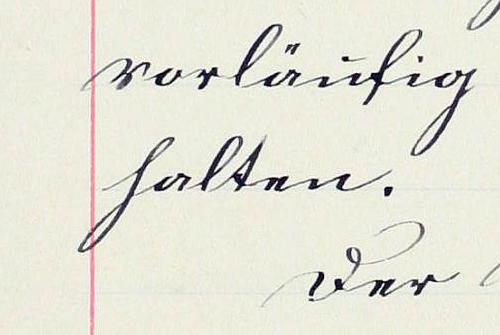 vorläufig
halten.
Der